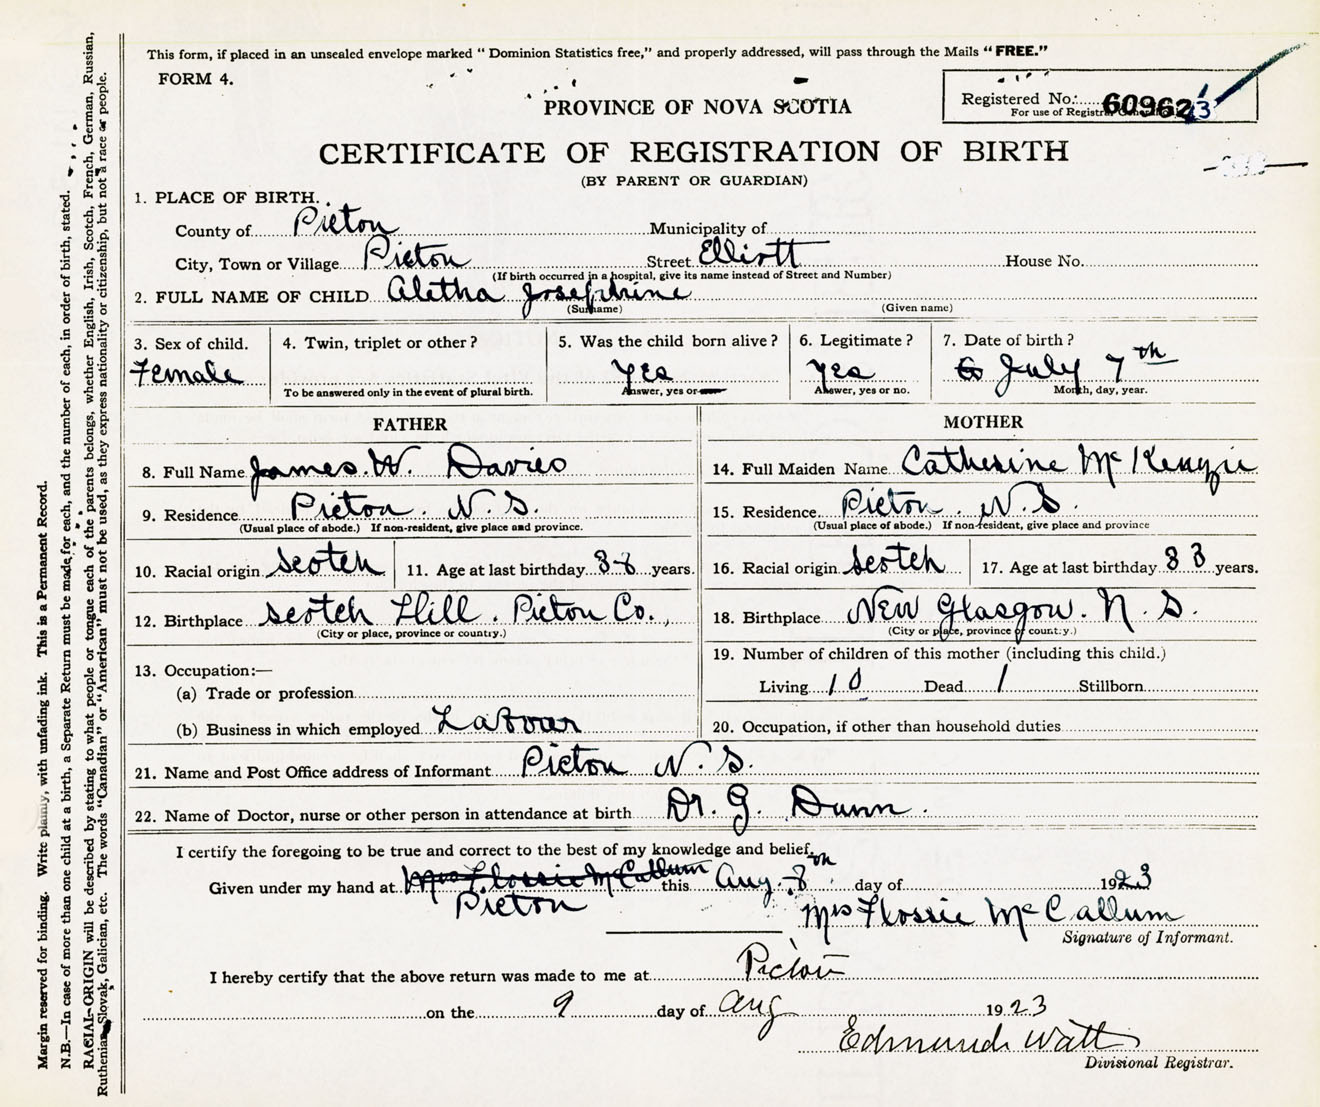 This form, if placed in an unsealed envelope marked “ Dominion Statistics free,” and properly addressed, will pass through the Mails “ FREE.”
FORM 4.
PROVINCE OF NOVA SCOTIA
Registered No. 609623
For use of Registrar General
CERTIFICATE OF REGISTRATION OF BIRTH
(BY PARENT OR GUARDIAN)
1. PLACE OF BIRTH.
County of Picton Municipality of
City, Town or Village Picton Street Elliott House No.
(If birth occurred in a hospital, give its name instead of Street and Number)
2. FULL NAME OF CHILD Aletha Josephine
(Surname) (Given name)
3. Sex of child. 4. Twin, triplet or other? 5. Was the child born alive? 6. Legitimate? 7. Date of birth?
Female Yes Yes July 7th
To be answered only in the event of plural birth. Answer, yes or Answer, yes or no. Month, day, year.
FATHER MOTHER
8. Full Name James. W. Davies 14. Full Maiden Name Catherine Mc Kenzie
9. Residence Picton . N. S. 15. Residence Picton . N. S.
(Usual place of abode.) If non-resident, give place and province. (Usual place of abode.) If non-resident, give place and province
10. Racial origin Scotch 11. Age at last birthday years. 16. Racial origin Scotch 17. Age at last birthday 33 years.
12. Birthplace Scotch Hill . Picton Co., 18. Birthplace New Glasgow. N. S.
(City or place, province or country.) (City or place, province or country.)
13. Occupation:— 19. Number of children of this mother (including this child.)
(a) Trade or profession Living 10 Dead 1 Stillborn
(b) Business in which employed Labour 20. Occupation, if other than household duties
21. Name and Post Office address of Informant Picton N. S.
22. Name of Doctor, nurse or other person in attendance at birth Dr. G. Dunn .
I certify the foregoing to be true and correct to the best of my knowledge and belief.
Given under my hand at Mrs Flossie McCallum this Aug. 8th day of 1923
Picton Mrs Flossie McCallum
Signature of Informant.
I hereby certify that the above return was made to me at Picton
on the 9 day of Aug 1923
Edmund Watt
Divisional Registrar.
Margin reserved for binding. Write plainly, with unfading ink. This is a Permanent Record.
N.B.—In case of more than one child at a birth, a Separate Return must be made for each, and the number of each, in order of birth, stated.
RACIAL ORIGIN will be described by stating to what people or tongue each of the parents belongs, whether English, Irish, Scotch, French, German, Russian,
Ruthenian, Slovak, Galician, etc. The words “Canadian” or “American” must not be used, as they express nationality or citizenship, but not a race or people.